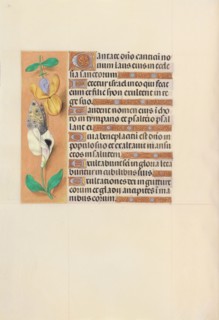 Cantate dño canticū no
uum laus eius in eccle
sia sanctorum
Letetur israel in eo qui fecit
eum et filie syon exultent in re
ge suo
Laudent nomen eius in cho
ro in tympano et psalterio psal
lant ei
Quia beneplacitū est dño in
populo suo et exaltauit mansu
etos in salutem
Exultabunt sci in gloria leta
buntur in cubilibus suis
Exultationes dei in gutture
eorum et gladii ancipites in ma
nibus eorum